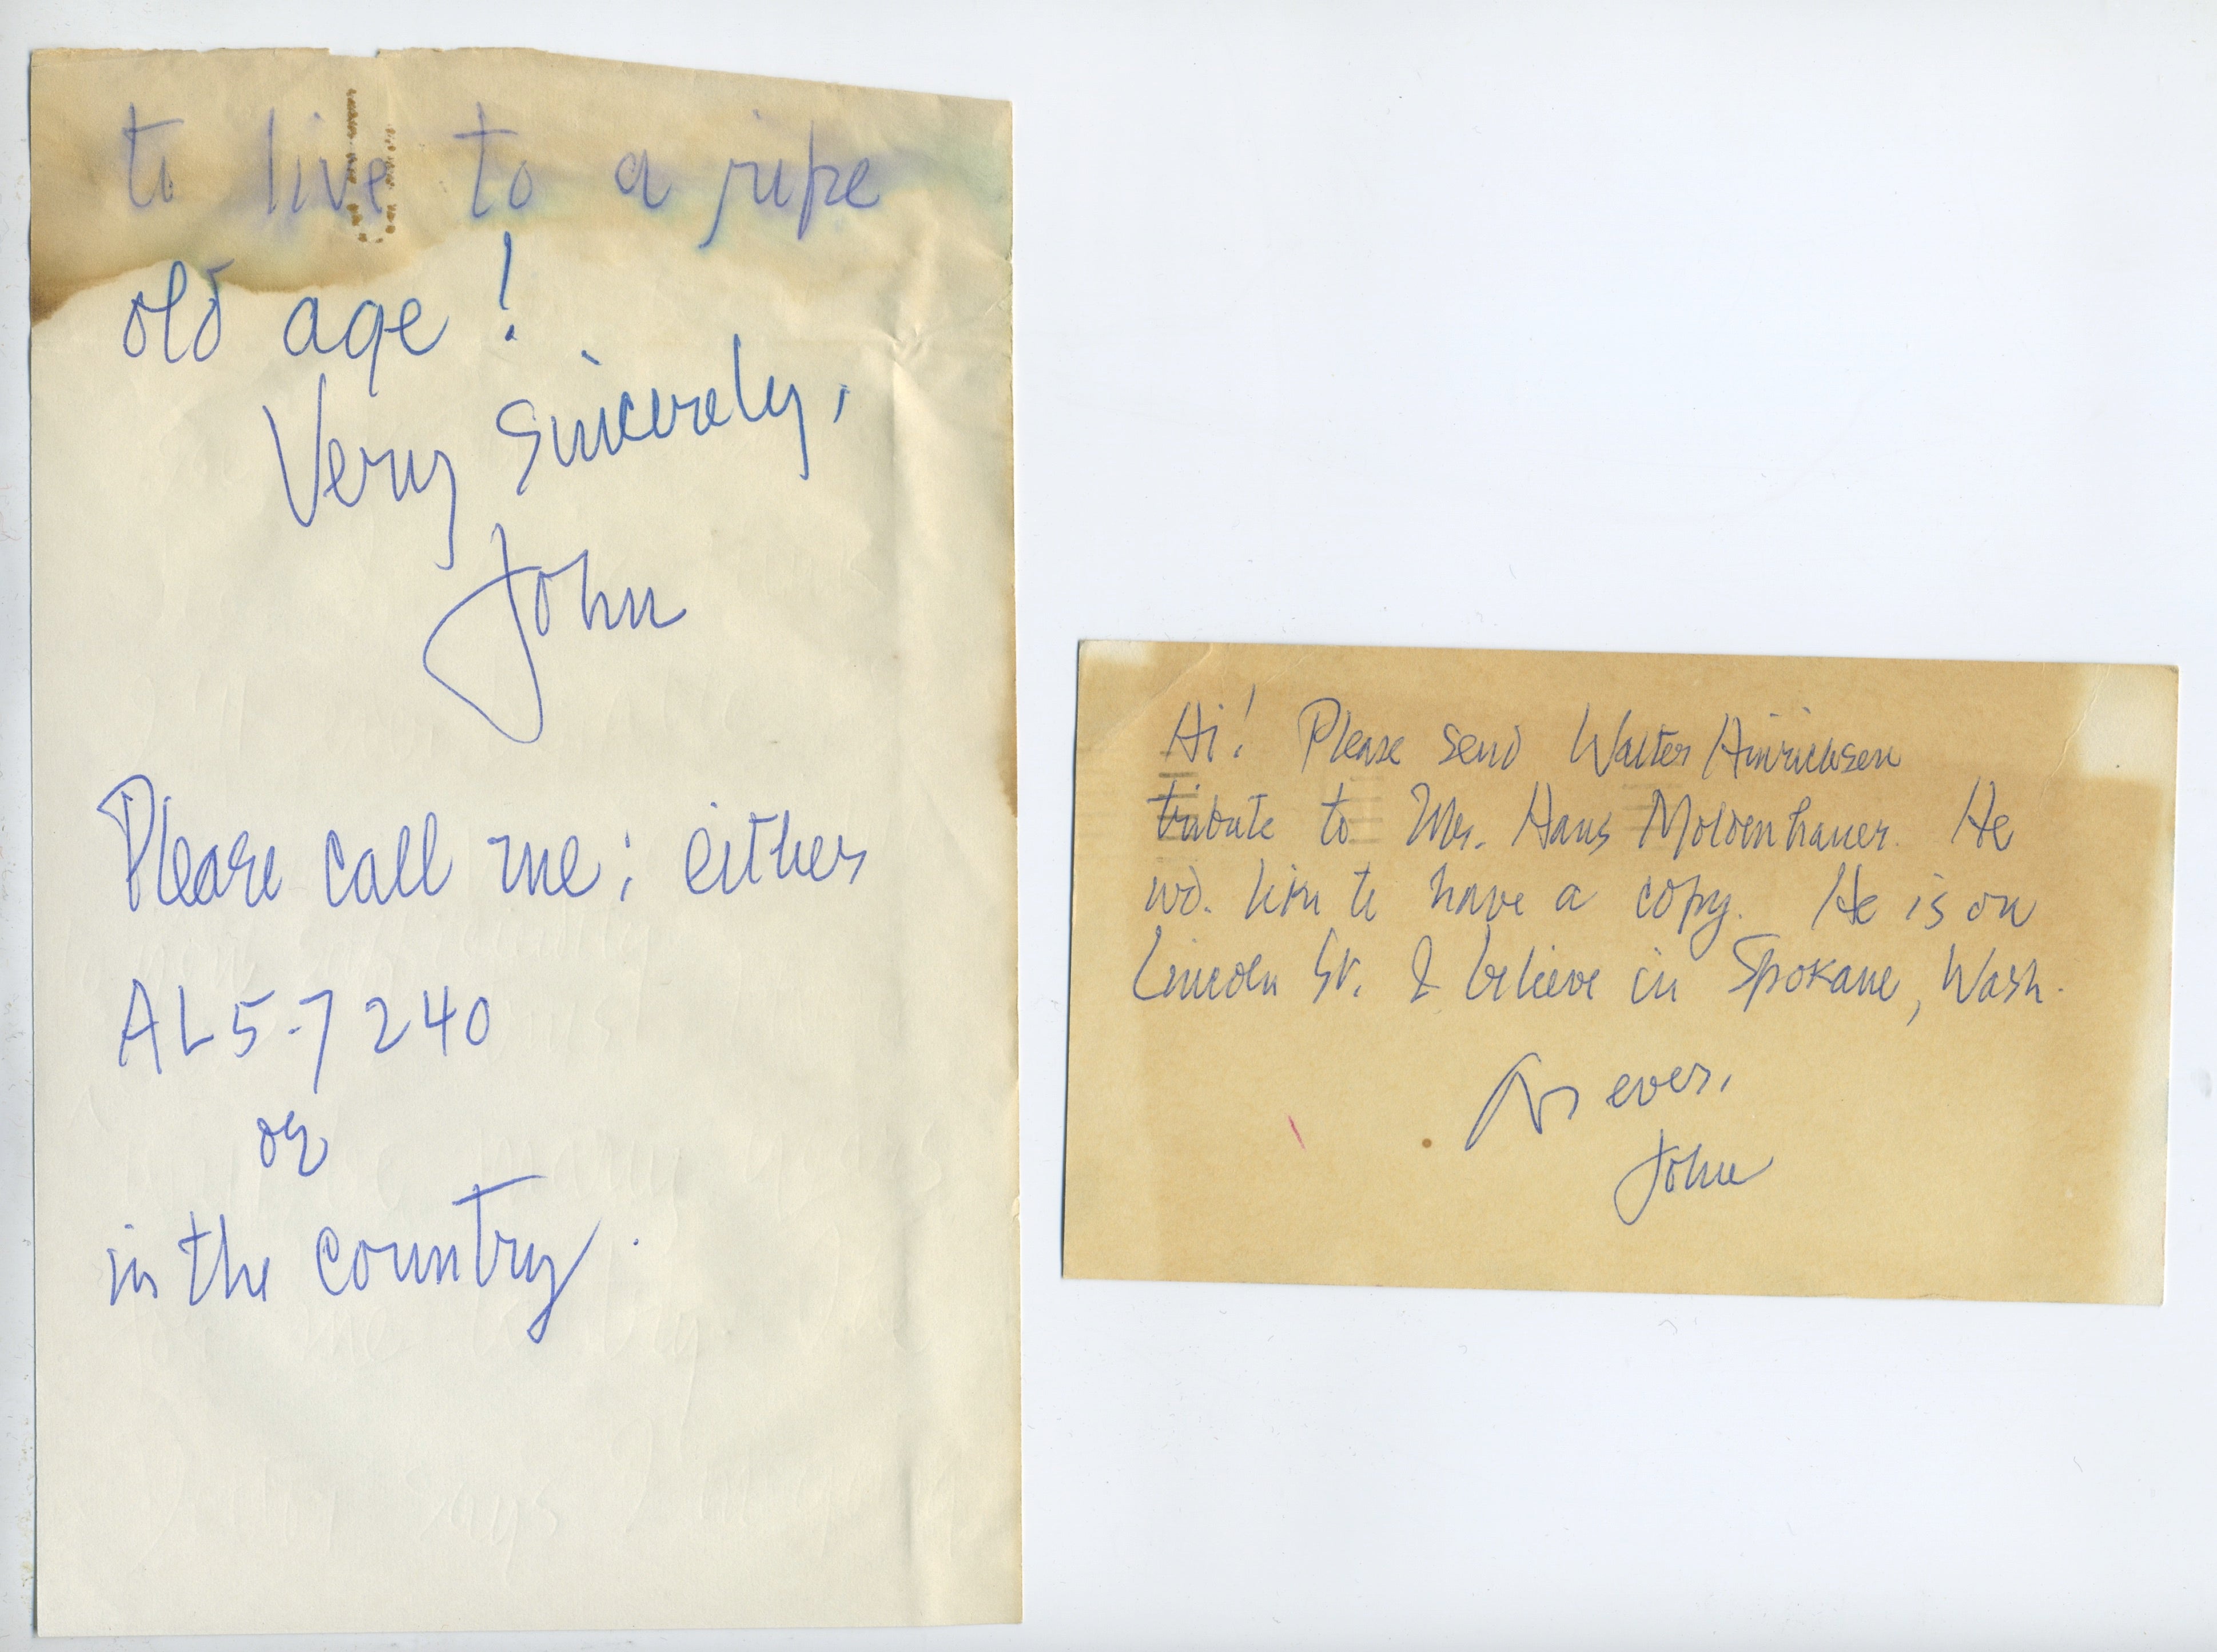 to live to a ripe
old age!
Very Sincerely,
John
Please call me: either
AL 5-7240
or
in the country.
Hi! Please send Walter Hinrichsen
tribute to Mr. Hans Moldenhauer. He
wd. like to have a copy. He is on
Lincoln St. I believe in Spokane, Wash.
As ever,
John